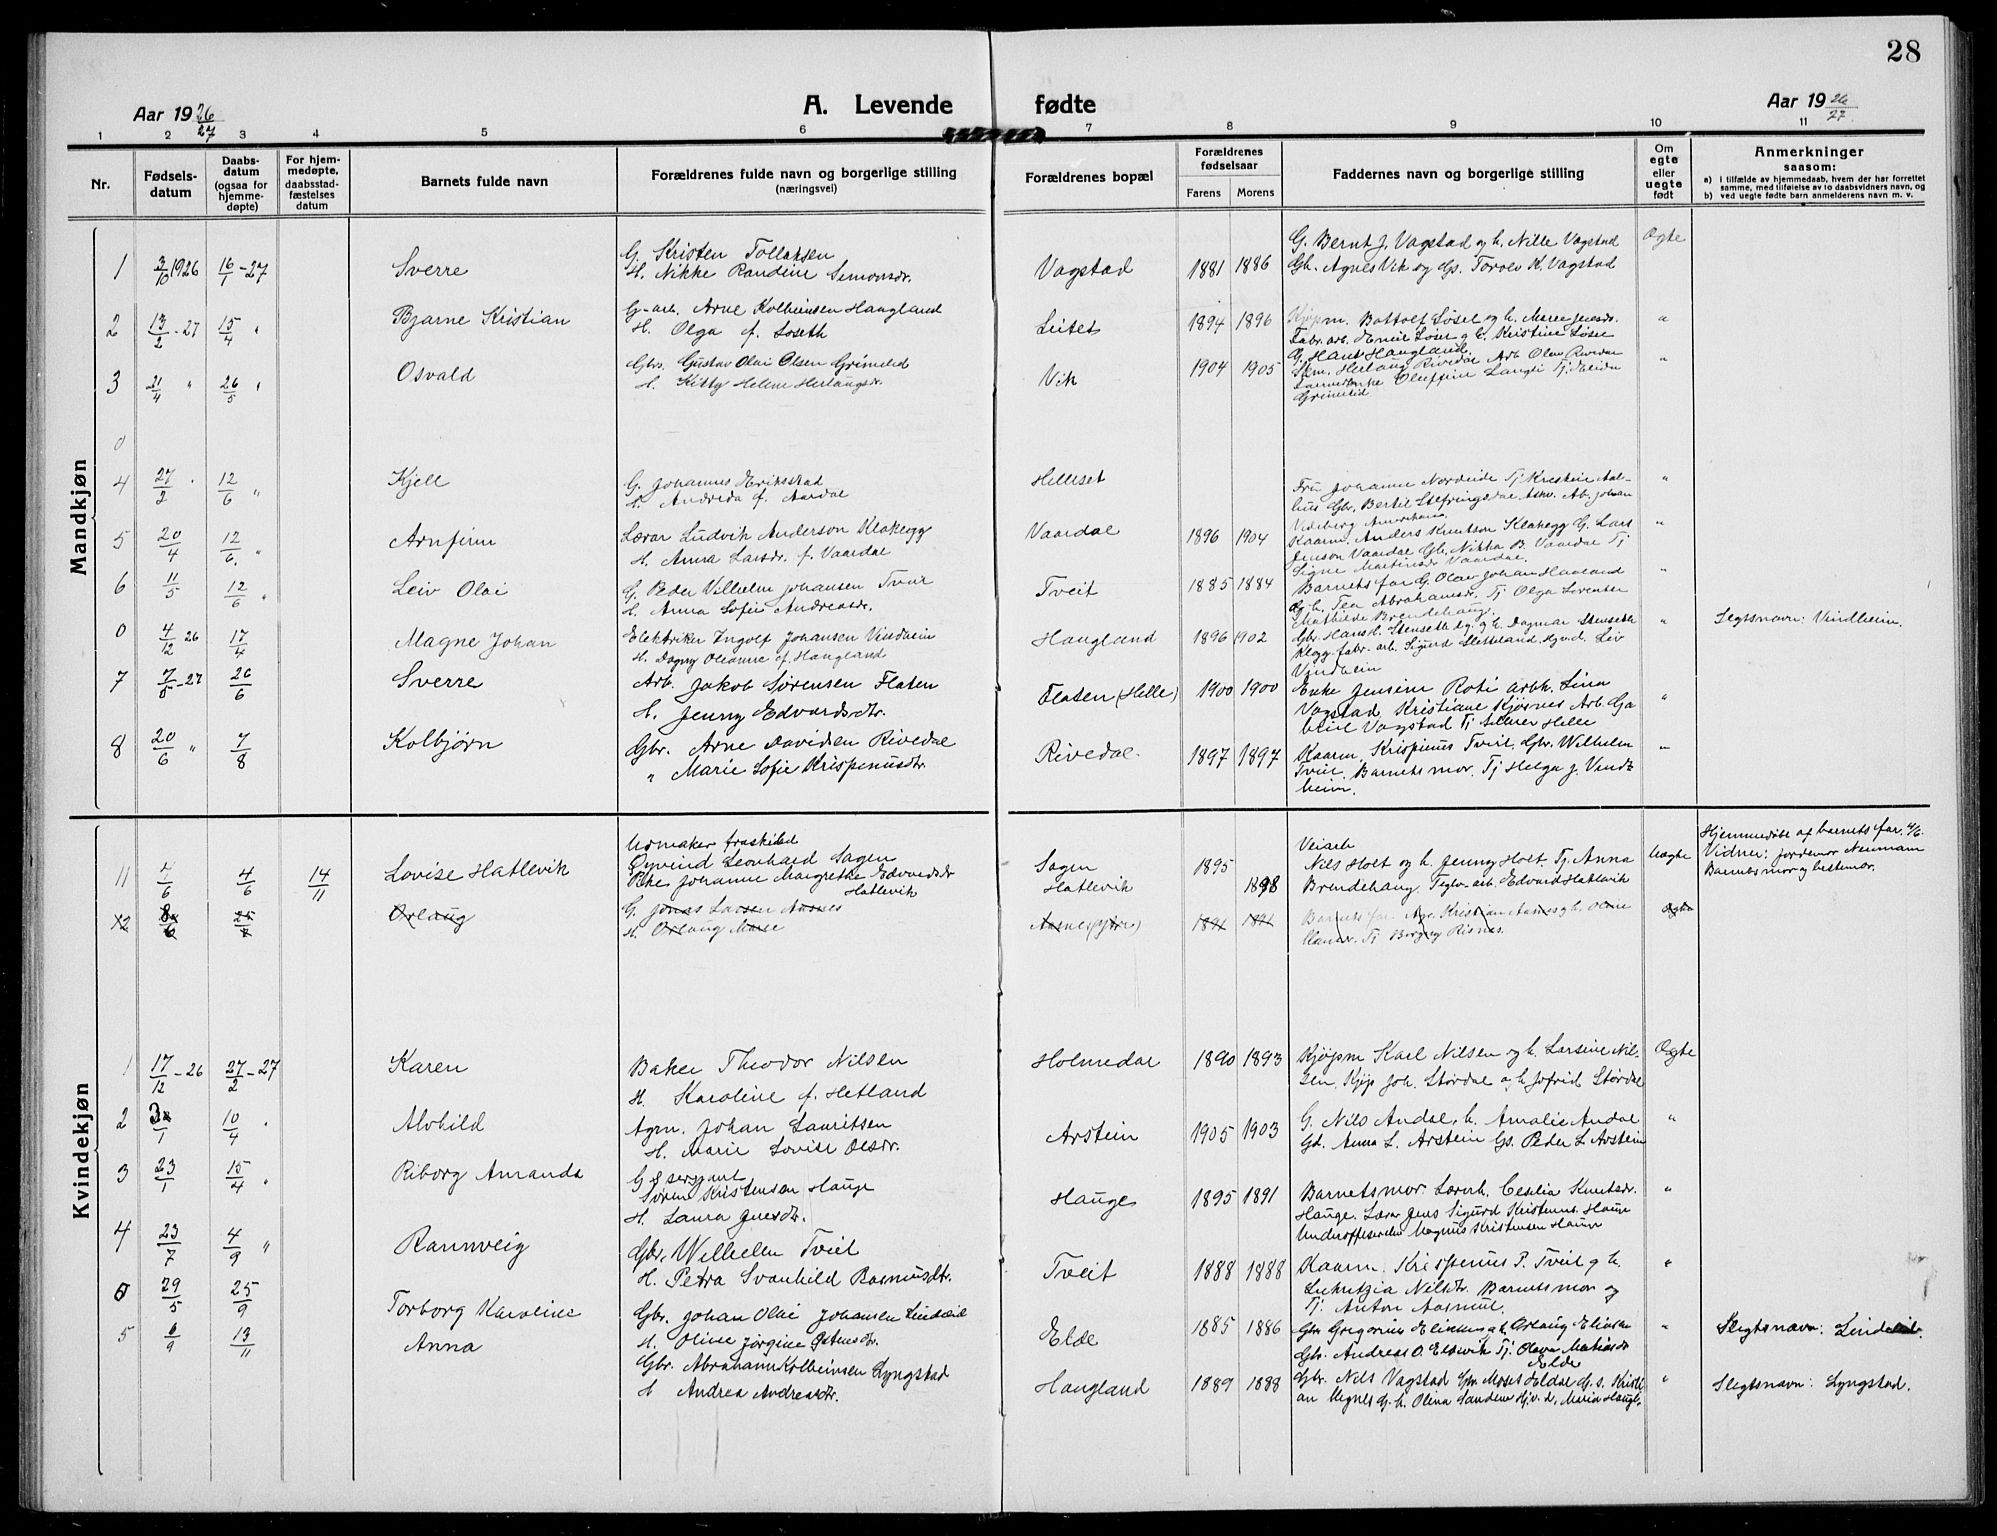 28
Aar 19 26/27
A. Levende fødte
Aar 19 26/27
1 2 3 4 5 6 7 8 9 10 11
Nr.
Fødsels-
datum
Daabs-
datum
(ogsaa for
hjemme-
døpte)
For hjem-
medøpte,
daabsstad-
fæstelses
datum
Barnets fulde navn
Forældrenes fulde navn og borgerlige stilling
(næringsvei)
Forældrenes bopæl
Forældrenes
fødselsaar
Farens Morens
Faddernes navn og borgerlige stilling
Om
egte
eller
uegte
født
Anmerkninger
saasom:
a) i tilfælde av hjemmedaab, hvem der har forrettet
samme, med tilføielse av to daabsvidners navn, og
b) ved uegte fødte barn anmelderens navn m. v.
Mandkjøn
1 3/10 1926 16/1 - 27 Sverre
G. Kristen Tollaksen
H. Nikke Randine Simonsdr.
Vagstad 1881 1886
G. Bernt J. Vagstad og h. Nille Vagstad
Gh. Agnes Vik og Gs. Torolv K. Vagstad
Ægte
2 13/2 - 27 15/4 " Bjarne Kristian
G. arb. Arne Kolbeinsen Haugland
H. Olga f. Løseth
Leitet 1894 1896
Kjøpm. Bottolf Løset og h. Maren
Fabr. arb. Emil Løset og h. Kristine Løset
G. Hans Haugland
"
3 21/4 " 26/5 " Osvald
Gbr. Gustav Olai Olsen Grimelid
H. Kitty Helene Herlaugsdr.
Vik 1904 1905
Herlaug Rivedal Arb. Olav Rivedal
Oluffine Langli Tj.
Grimelid
"
0
4 27/2 " 12/6 " Kjell
G. Johannes Eriksstad
H. Andrea f. Aardal
Helleset
Fru Johanne Nordeide Tj. Kristine Aal-
hus Gbr. Bertil Askv. Ab. Johan
Videberg Amerikaner
"
5 20/4 12/6 " Arnfinn
Lærer Ludvik Anderson Klakegg
H. Anna Larsdr. f. Vaardal
Vaardal 1896 1904
Kaarm. Anders Knutson Klakegg G. Lars
Jenson Vaardal Gh. Nikka B. Vaardal Tj
Signe Martinsdr Vaardal.
"
6 11/5 12/6 " Leiv Olai
G. Peder Vilhelm Johansen Tveit
H. Anna Sofie Andreasdr.
Tveit 1885 1884
Barnets far G. Olav Johan Haaland
og h. Tea Abrahamsdr. Tj Olga Lorentse
Mathilde Brendehaug.
"
0 4/12 26 17/4 Magne Johan
Elektriker Ingolf Johansen Vindheim
H. Dagny Oleanne f. Haugland
Haugland 1896 1902
Gbr. Hans H. Stenseth og h. Dagmar Stenseth
Klegg fabr. arb. Sigurd Sletteland Leiv
Vindheim
"
Slegtsnavn: Vindheim.
7 7/5 - 27 26/6 Sverre
Arb. Jakob Sørensen Flaten
H. Jenny Edvardsdtr.
Flaten (Helle) 1900 1900
Enke Jensine Roti arbk. Lina
Vagstad Kristiane Kjøsnes Arb. Ga
briel Vagstad Tj Helle
"
8 20/6 " 7/8 Kolbjørn
Gbr. Arne Davidsen Rivedal
" Marie Sofie Krispinusdtr.
Rivedal 1897 1897
Kaarm. Krispinus Tveit. Gbr. Wilhelm
Tveit. Barnets mor. Tj Helga J. Vind
heim.
"
Kvindekjøn
11 4/6 4/6 14/11 Lovise Hatlevik
Urmaker fraskilod
Øyvind Leonhard Sagen
Pike Johanne Margrethe Edvardsdr
Hatlevik
Sagen
Hatlevik 1895 1898
Veiarb
Nils Holt og h. Jenny Holt. Tj. Anna
Brendehaug. Teglv. arb. Edvard Hatlevik
Uægte
Hjemmedøbt af barnets far. 4/6.
Vidner: jordemor Neumann
Barnets mor og bestemor.
Ørlaug
G. Jonas Larsen Aasnes
H. Ørlaug Marie
Aasnes (ytre) 1891 1891
Barnets far. Agr. Kristian Aasnes og h. Oline
Hansdr. Tj Borgny Risnes.
Ægte
1 17/12 - 26 27/2 - 27 Karen
Baker Theodor Nilsen
H. Karoline f. Hetland
Holmedal 1890 1893
Kjøpm Karl Nilsen og h. Larsine Nil-
sen. Kjøp Joh. Størdal o, h Jofrid Størdal
Ægte
2 30/1 10/4 " Alvhild
Agrn. Johan Lauritsen
H. Marie Lovise Olsdr.
Arstein 1905 1903
G. Nils Andal, h. Amalie Andal
Gd. Anna L. Arstein Gs. Peder L Arstein
"
3 23/1 15/4 " Riborg Amanda
G & sersjant
Søren Kristensen Hauge
H. Laura Jensdtr.
Hauge 1895 1891
Barnets mor. Lærerh. Cecilia Knutsdr.
Hauge. Lærer Jens Sigurd Kristens. Hauge
Underofficerelev Magnus Kristensen Hauge
"
4 23/7 4/9 " Rannveig
Gbr. Wilhelm Tveit
H. Petra Svanhild Rasmusdtr.
Tveit 1888 1888
Kaarm. Krispinus P. Tveit g h.
Lukretzia Nilsdr. Barnets mor og
Tj. Anton Aasmul.
"
0 29/5 25/9 Torborg Karoline
Gbr. Johan Olai Johansen Lindeid
H. Oline Jørgine Østensdtr.
Elde 1885 1886
Gbr Gregorius Elinsen g h. Ørlaug Elinsen
Gbr. Andreas O. Eldevik Tj. Olava Matiasdr
Elde
"
Slegtsnavn: Lindeid.
5 6/9 13/11 Anna
Gbr. Abrahann Kolbeinsen Lyngstad
H Andrea Andreasdtr.
Haugland 1889 1888
Gbr. Nils Vagstad Gbr Moses Eldal G. s. Kristi
an Hegnes G. h. Olina Sandene Hj. v. d. Maria Haugl.
"
Slegtsnavn: Lyngstad.